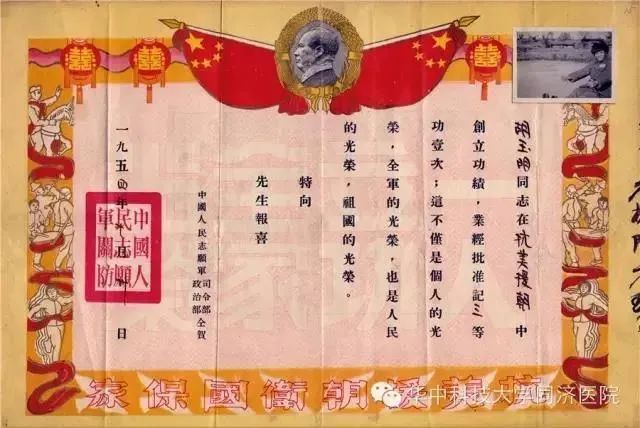 囍
囍
囍
囍
胡玉明同志在抗美援朝中
創立功績，業經批准記三等
功壹次；這不僅是個人的光
榮，全軍的光榮，也是人民
的光榮，祖國的光榮。
特向
先生報喜
中國人民志願軍
司令部
政治部
仝賀
一九五四年 月 日
中國人
民志願
軍關防
抗美援朝衛國保家
华中科技大学同济医院